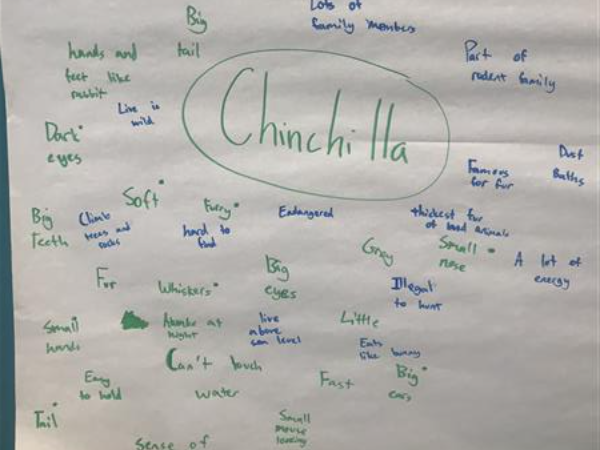 Big
tail
Lots of
family members
hands and
feet like
rabbit
Part of
rodent family
Live in
wild
Chinchilla
Dark
eyes
Dust
Baths
Famous
for fur
Soft
Furry
Endangered
thickest fur
of land animals
Big
Teeth
Climb
trees and
rocks
hard to
find
Gray
Small
nose
A lot of
energy
Fur
Whiskers
Big
eyes
Illegal
to hunt
Small
hands
Awake at
night
live
above
sea level
Little
Eats
like bunny
Can't touch
water
Easy
to hold
Fast
Big
ears
Tail
Small
mouse
looking
Sense of